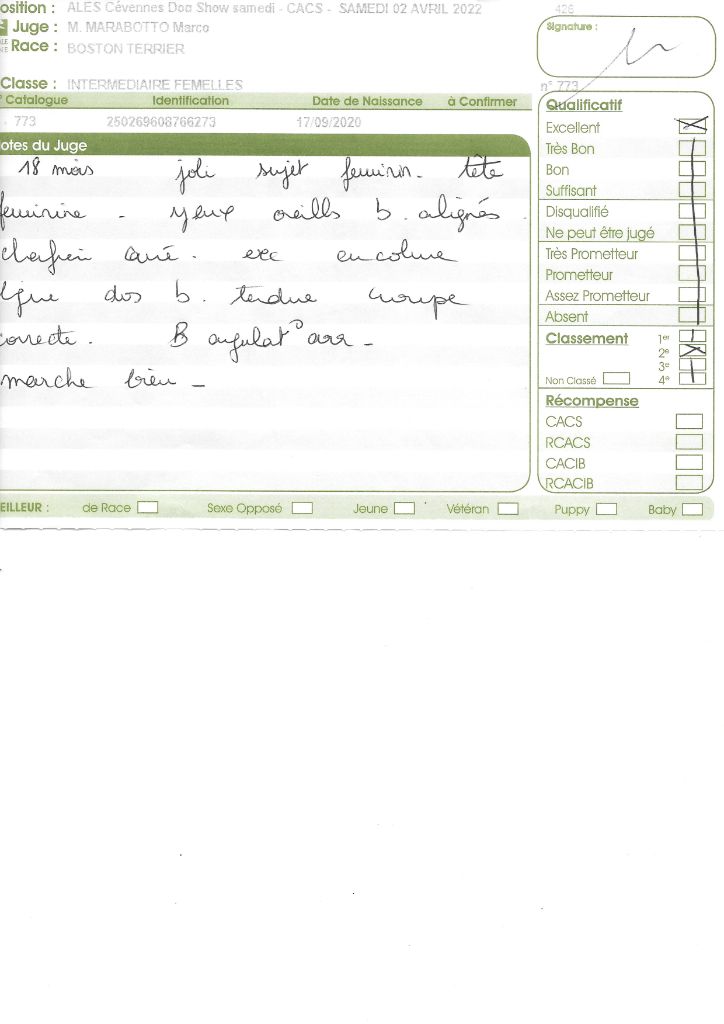 osition : ALES Cévennes Dog Show samedi - CACS - SAMEDI 02 AVRIL 2022 426
Juge : M. MARABOTTO Marco
Race : BOSTON TERRIER
Signature :
Classe : INTERMEDIAIRE FEMELLES n° 773
° Catalogue Identification Date de Naissance à Confirmer
- 773 250269608766273 17/09/2020
otes du Juge
18 mois joli sujet feminin - tête
feminine - yeux oreills b. alignés .
chafrein carré . exc encolure
ligne dos b. tendue croupe
correcte . B angulat° arr -
marche bien -
Qualificatif
Excellent
Très Bon
Bon
Suffisant
Disqualifié
Ne peut être jugé
Très Prometteur
Prometteur
Assez Prometteur
Absent
Classement 1er
2e
3e
Non Classé 4e
Récompense
CACS
RCACS
CACIB
RCACIB
EILLEUR : de Race Sexe Opposé Jeune Vétéran Puppy Baby